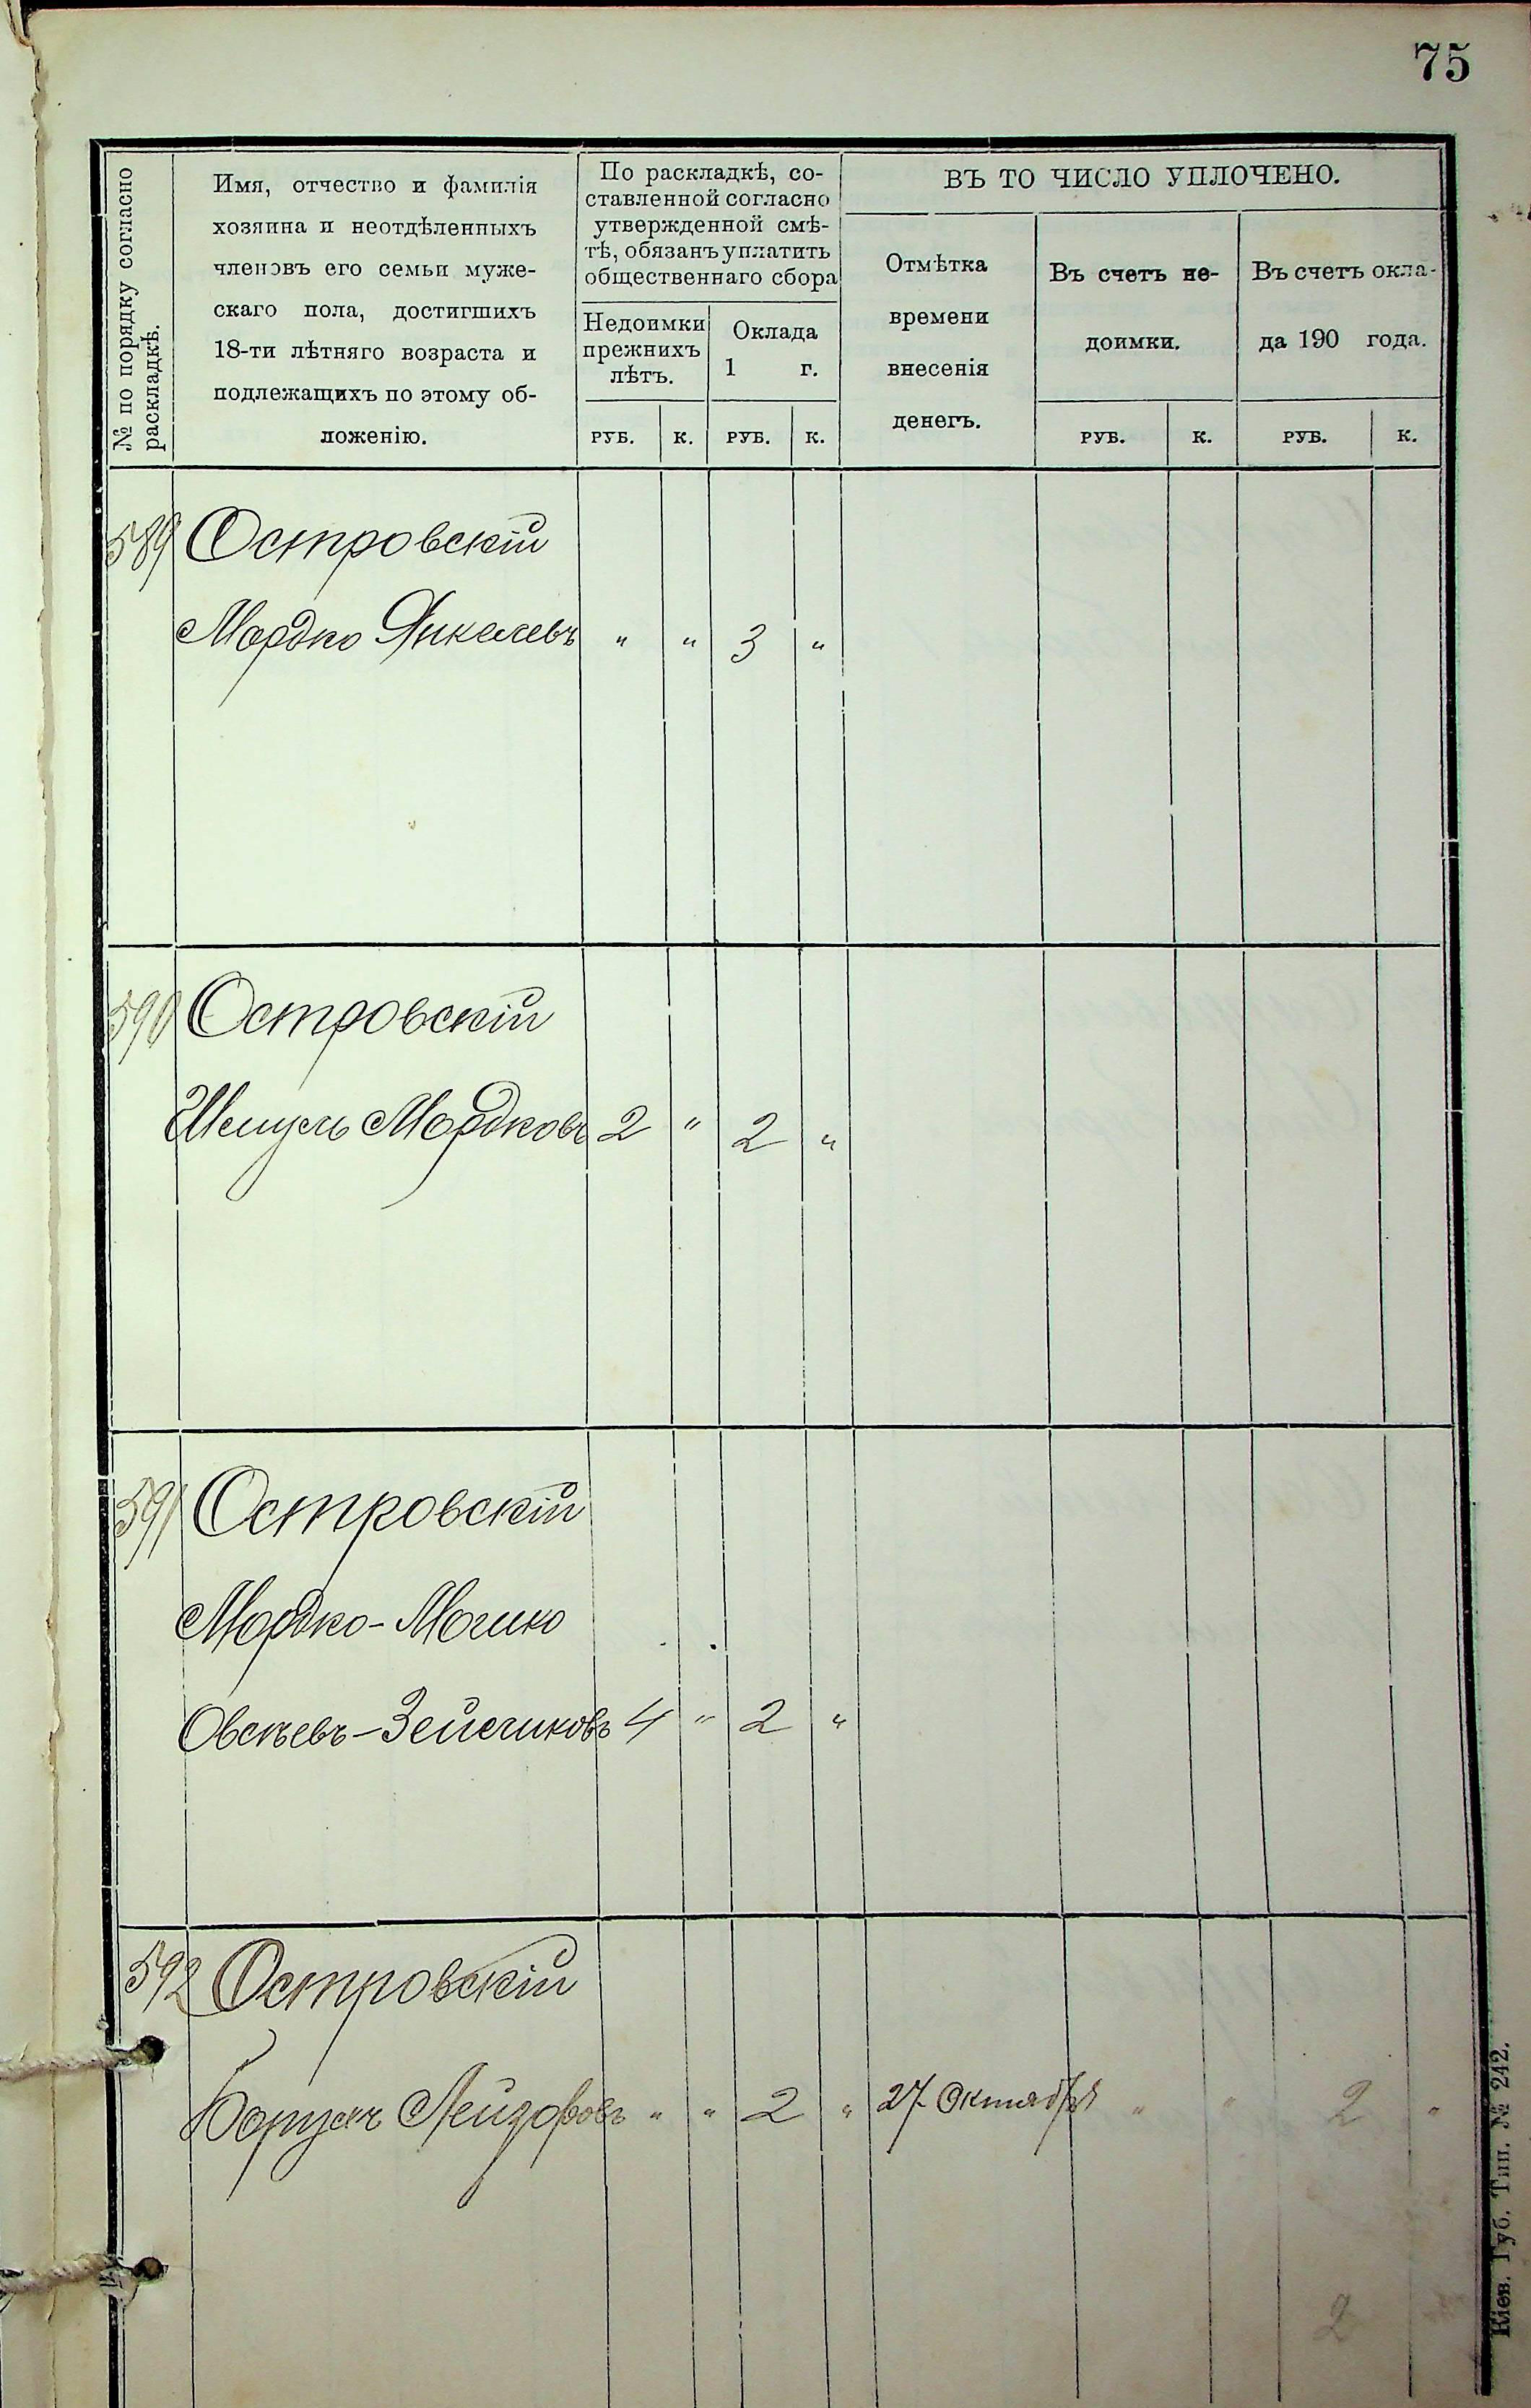 75
№ по порядку согласно
раскладкѣ.
Имя, отчество и фамилія
хозяина и неотдѣленныхъ
членовъ его семьи муже-
скаго пола, достигшихъ
18-ти лѣтняго возраста и
подлежащихъ по этому об-
ложенію.
По раскладкѣ, со-
ставленной согласно
утвержденной смѣ-
тѣ, обязанъ уплатить
общественнаго сбора
Недоимки
прежнихъ
лѣтъ.
Оклада
1 г.
ВЪ ТО ЧИСЛО УПЛОЧЕНО.
Отмѣтка
времени
внесенія
денегъ.
Въ счетъ не-
доимки.
Въ счетъ окла-
да 190 года.
РУБ. К. РУБ. К. РУБ. К. РУБ. К.
589 Островскій
Мордко Янкелевъ " " 3 "
590 Островскій
Шмуль Мордковъ 2 " 2 "
591 Островскій
Мордко-Мошко
Овсѣевъ-Зейликовъ 4 " 2 "
592 Островскій
Борухъ Лейзоровъ " " 2 " 27 Октября " " 2 "
2
Кіев. Губ. Тип. № 242.